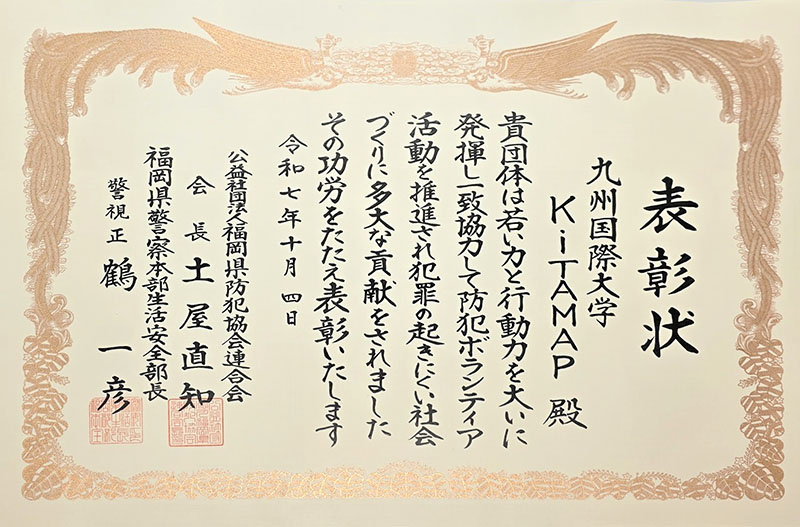 表彰状
九州国際大学
KiTAMAP 殿
貴団体は若い力と行動力を大いに
発揮し一致協力して防犯ボランティア
活動を推進され犯罪の起きにくい社会
づくりに多大な貢献をされました
その功労をたたえ表彰いたします
令和七年十月四日
公益社団法人福岡県防犯協会連合会
会長 土屋直知
福岡県警察本部生活安全部長
警視正 鶴一彦